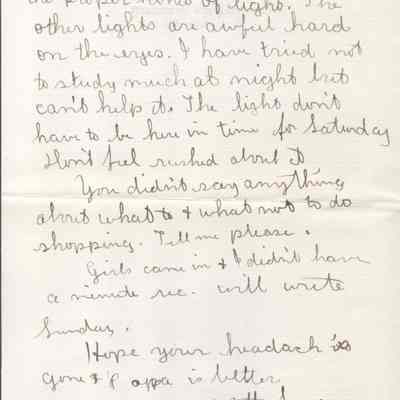 the proper kind of light. The
other lights are awful hard
on the eyes. I have tried not
to study much at night but
can't help it. The light don't
have to be here in time for Saturday
Don't feel rushed about it
You didn't say anything
about what to & what not to do
shopping. Tell me please.
Girls came in & I didn't have
a minute rec. will write
Sunday.
Hope your headach is
gone & Papa is better